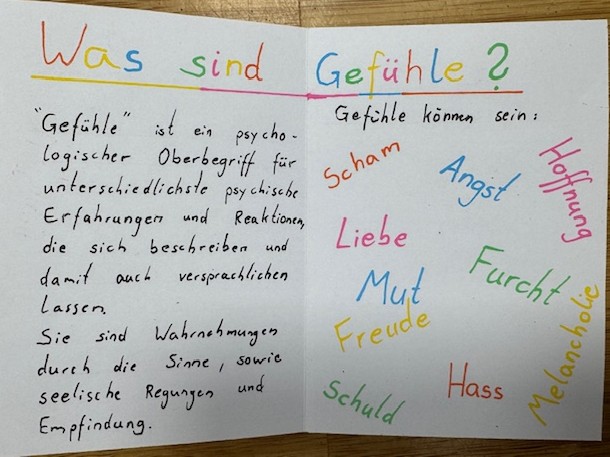 Was sind Gefühle?
"Gefühle" ist ein psycho-
logischer Oberbegriff für
unterschiedlichste psychische
Erfahrungen und Reaktionen,
die sich beschreiben und
damit auch versprachlichen
lassen.
Sie sind Wahrnehmungen
durch die Sinne, sowie
seelische Regungen und
Empfindung.
Gefühle können sein:
Scham
Angst
Hoffnung
Liebe
Mut
Furcht
Freude
Melancholie
Hass
Schuld